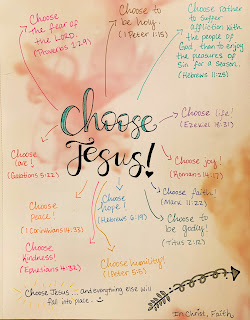 Choose
the fear of
the LORD.
(Proverbs 1:29)
Choose to
be holy.
(1 Peter 1:15)
Choose rather
to suffer
affliction with
the people of
God, than to enjoy
the pleasures of
Sin for a season.
(Hebrews 11:25)
Choose
Jesus!
Choose life!
(Ezekiel 18:31)
Choose
love!
(Galatians 5:22)
Choose joy!
(Romans 14:17)
Choose faith!
(Mark 11:22)
Choose
hope!
(Hebrews 6:19)
Choose
Peace!
(1 Corinthians 14:33)
Choose to
be godly!
(Titus 2:12)
Choose
kindness!
(Ephesians 4:32)
Choose humility!
(1 Peter 5:5)
Choose Jesus... and everything else will
fall into place.
In Christ, Faith